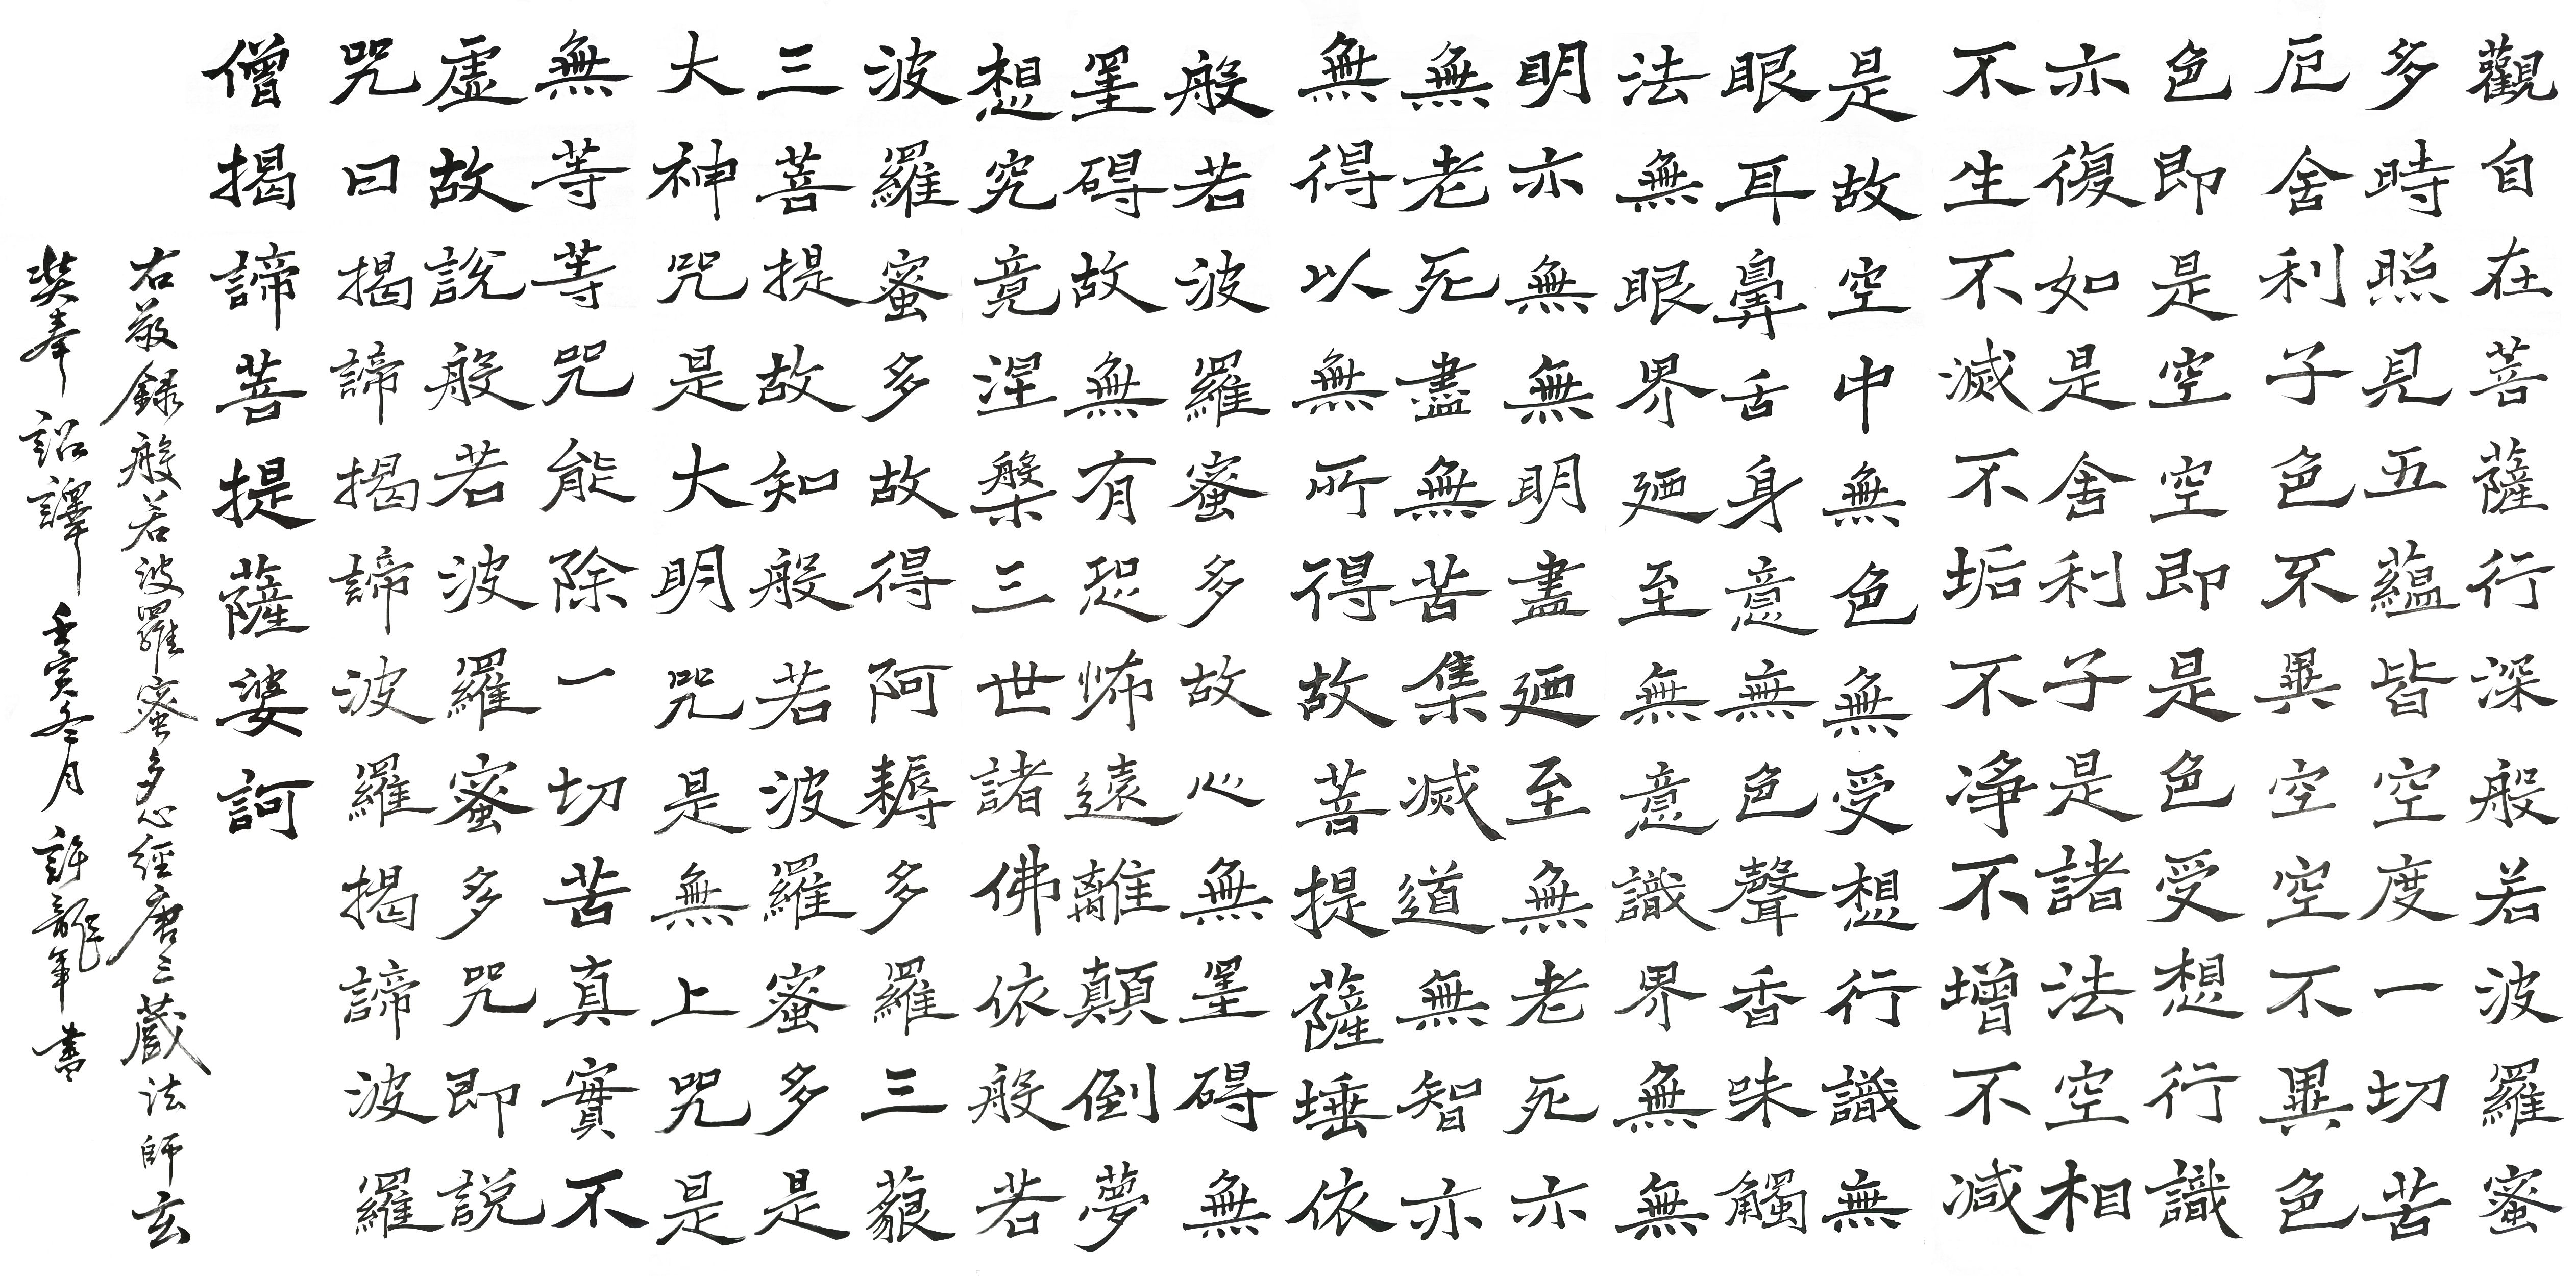 觀自在菩薩行深般若波羅蜜
多時照見五蘊皆空度一切苦
厄舍利子色不異空空不異色
色即是空空即是色受想行識
亦復如是舍利子是諸法空相
不生不滅不垢不淨不增不減
是故空中無色無受想行識無
眼耳鼻舌身意無色聲香味觸
法無眼界廼至無意識界無無
明亦無無明盡廼至無老死亦
無老死盡無苦集滅道無智亦
無得以無所得故菩提薩埵依
般若波羅蜜多故心無罣碍無
罣碍故無有恐怖遠離顛倒夢
想究竟涅槃三世諸佛依般若
波羅蜜多故得阿耨多羅三藐
三菩提故知般若波羅蜜多是
大神咒是大明咒是無上咒是
無等等咒能除一切苦真實不
虛故說般若波羅蜜多咒即說
咒曰揭諦揭諦波羅揭諦波羅
僧揭諦菩提薩婆訶
右敬錄般若波羅蜜多心經唐三藏法師玄
奘奉詔譯壬寅冬月許龍年書